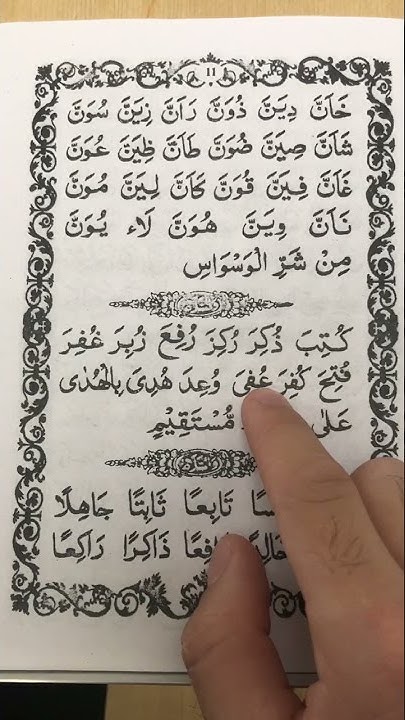 ١١
خَانَّ دِيَنَّ ذُوَنَّ رَانَّ زِيَنَّ سُوَنَّ
شَانَّ صِيَنَّ ضُوَنَّ طَانَّ ظِيَنَّ عُوَنَّ
غَانَّ فِيَنَّ قُوَنَّ كَانَّ لِيَنَّ مُوَنَّ
نَانَّ وِيَنَّ هُوَنَّ لَاء يُوَنَّ
مِنْ شَرِّ الْوَسْوَاسِ
كُتِبَ ذُكِرَ رُكِزَ رُفِعَ زُبِرَ غُفِرَ
فُتِحَ كُفِرَ عُفِيَ وُعِدَ هُدِيَ بِالْهُدٰى
عَلٰى مُّسْتَقِيْمٍ
تَابِعًا ثَابِتًا جَاهِلًا
ذَاكِرًا رَاكِعًا